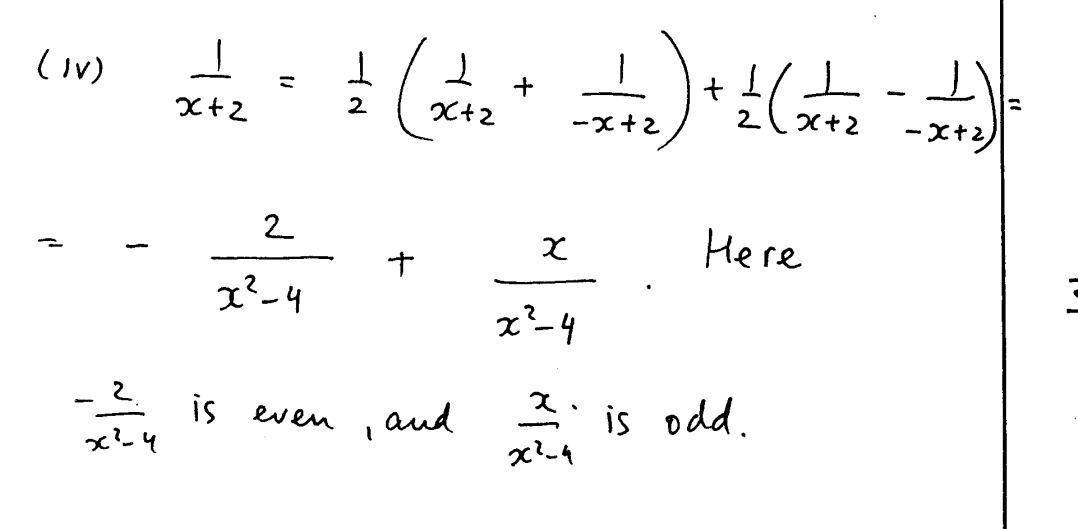 (iv) 1/(x+2) = 1/2 (1/(x+2) + 1/(-x+2)) + 1/2 (1/(x+2) - 1/(-x+2)) =
= - 2/(x²-4) + x/(x²-4) . Here
-2/(x²-4) is even, and x/(x²-4) is odd.